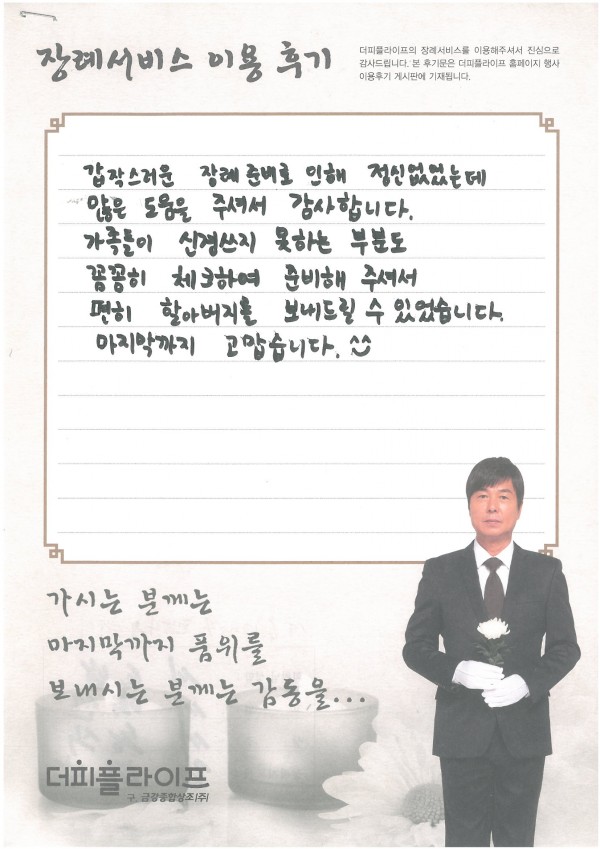 장례서비스 이용 후기
더피플라이프의 장례서비스를 이용해주셔서 진심으로
감사드립니다. 본 후기문은 더피플라이프 홈페이지 행사
이용후기 게시판에 기재됩니다.
갑작스러운 장례 준비로 인해 정신없었는데
많은 도움을 주셔서 감사합니다.
가족들이 신경쓰지 못하는 부분도
꼼꼼히 체크하여 준비해 주셔서
편히 할아버지를 보내드릴 수 있었습니다.
마지막까지 고맙습니다. ^^
가시는 분께는
마지막까지 품위를
보내시는 분께는 감동을...
더피플라이프
구. 금강종합상조(주)